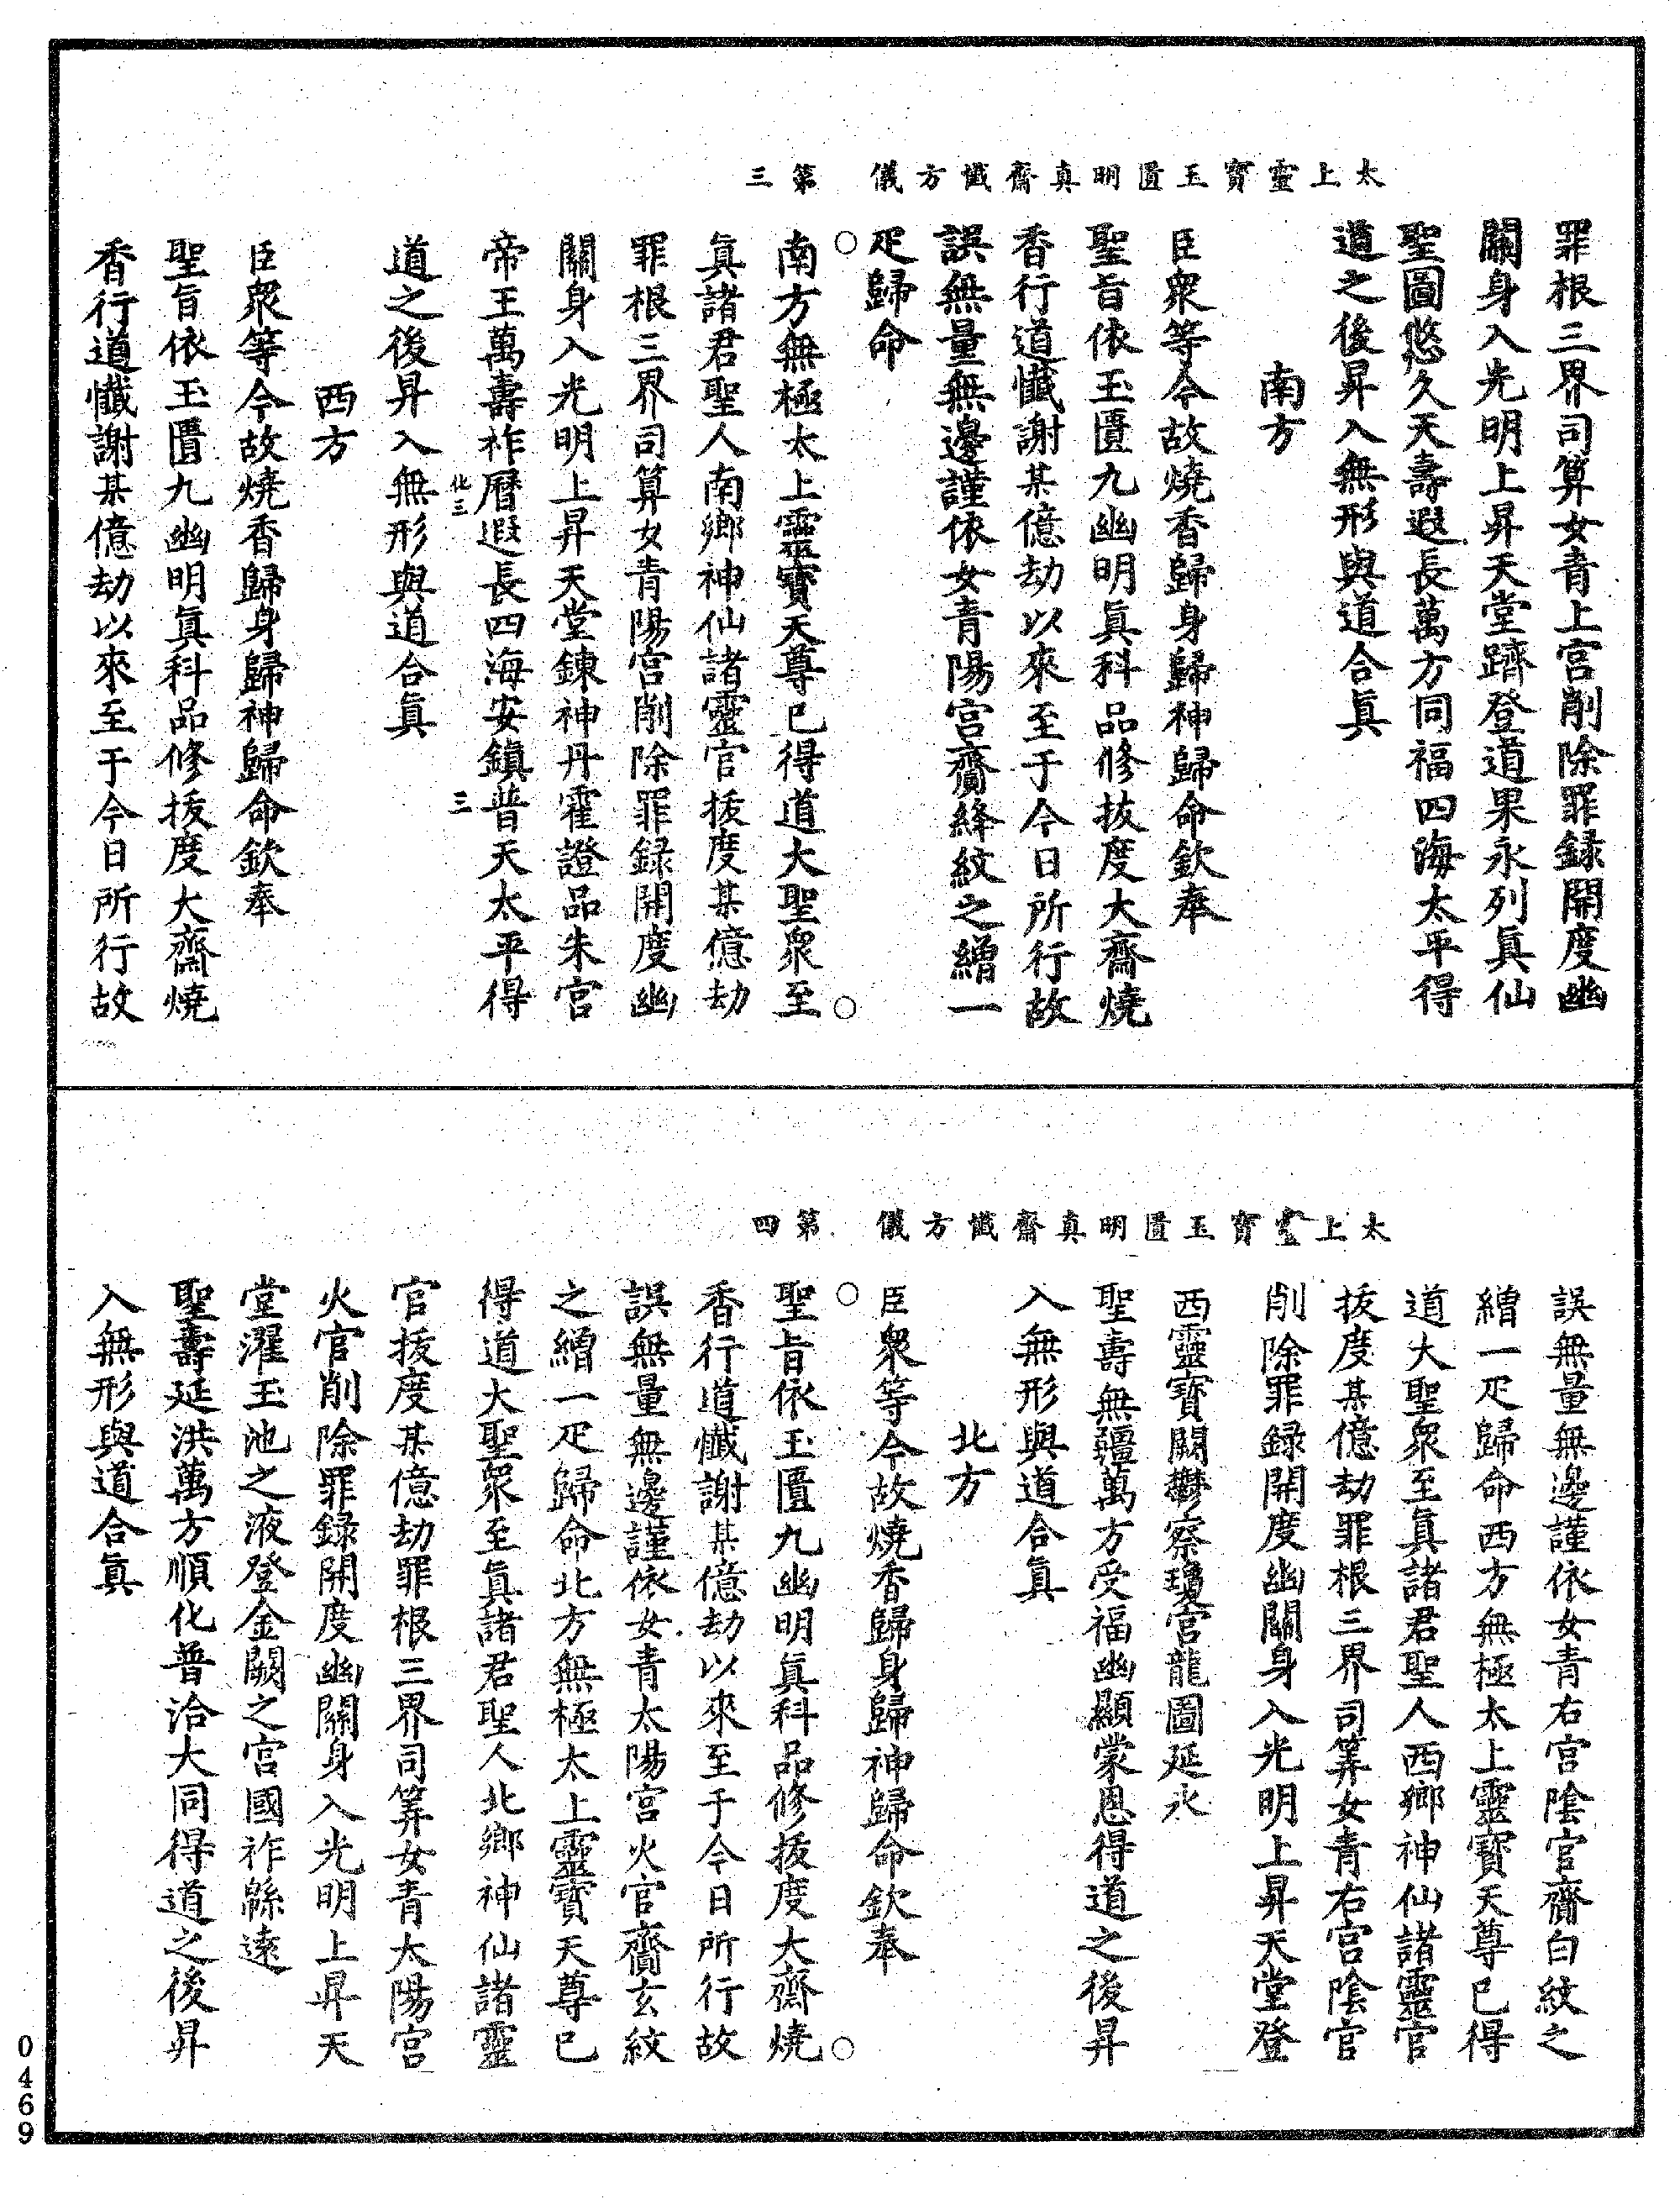 太上靈寶玉匱明真齋懺方儀　第三
罪根三界司算女青上宮削除罪錄開度幽
關身入光明上昇天堂躋登道果永列眞仙
聖圖悠久天壽遐長萬方同福四海太平得
道之後昇入無形與道合眞
南方
臣衆等今故燒香歸身歸神歸命欽奉
聖旨依玉匱九幽明眞科品修拔度大齋燒
香行道懺謝某億劫以來至于今日所行故
誤無量無邊謹依女青陽宮齎絳紋之繒一
疋歸命
南方無極太上靈寶天尊已得道大聖衆至
眞諸君聖人南鄉神仙諸靈官拔度某億劫
罪根三界司算女青陽宮削除罪錄開度幽
關身入光明上昇天堂鍊神丹霍證品朱宮
帝王萬壽祚曆遐長四海安鎮普天太平得
化三　三
道之後昇入無形與道合眞
西方
臣衆等今故燒香歸身歸神歸命欽奉
聖旨依玉匱九幽明眞科品修拔度大齋燒
香行道懺謝某億劫以來至于今日所行故
太上靈寶玉匱明真齋懺方儀　第四
誤無量無邊謹依女青右宮陰官齎白紋之
繒一疋歸命西方無極太上靈寶天尊已得
道大聖衆至眞諸君聖人西鄉神仙諸靈官
拔度某億劫罪根三界司筭女青右宮陰官
削除罪錄開度幽關身入光明上昇天堂登
西靈寶闕欝察瓊宮龍圖延火
聖壽無疆萬方受福幽顯蒙恩得道之後昇
入無形與道合眞
北方
臣衆等今故燒香歸身歸神歸命欽奉
聖旨依玉匱九幽明眞科品修拔度大齋燒
香行道懺謝某億劫以來至于今日所行故
誤無量無邊謹依女青太陽宮火官齎玄紋
之繒一疋歸命北方無極太上靈寶天尊已
得道大聖衆至眞諸君聖人北鄉神仙諸靈
官拔度某億劫罪根三界司筭女青太陽宮
火官削除罪錄開度幽關身入光明上昇天
堂濯玉池之液登金闕之宮國祚緜遠
聖壽延洪萬方順化普洽大同得道之後昇
入無形與道合眞
0469